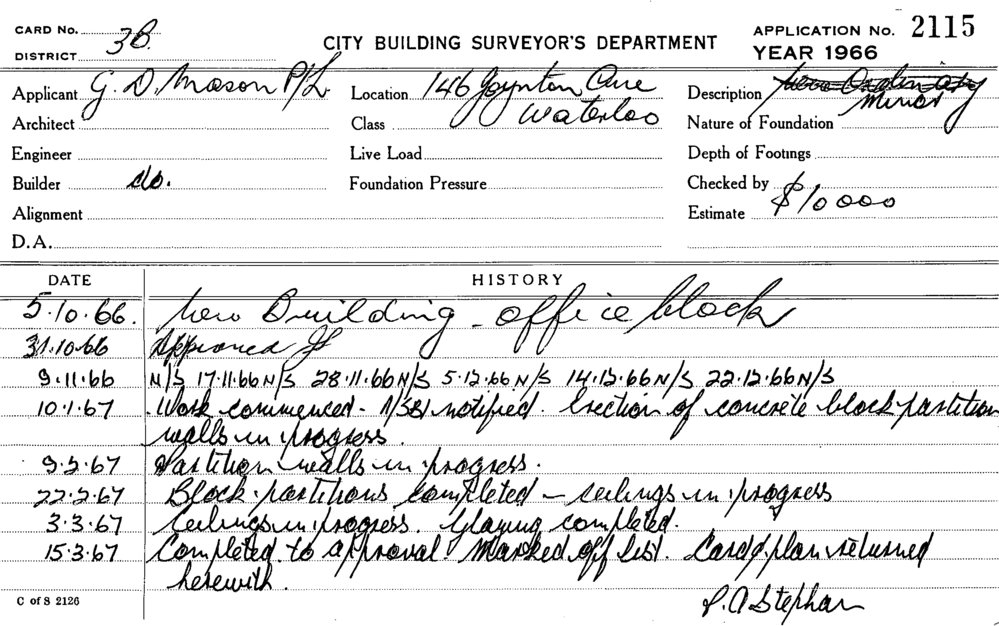 CARD No.
3B.
DISTRICT
CITY BUILDING SURVEYOR'S DEPARTMENT
APPLICATION No. 2115
YEAR 1966
Applicant G. D. Mason P/L.
Location 146 Joynton Ave
Waterloo
Description New Ordinary
Minor
Architect
Class
Nature of Foundation
Engineer
Live Load
Depth of Footings
Builder do.
Foundation Pressure
Checked by
Alignment
Estimate $10000
D.A.
DATE HISTORY
5.10.66. New Building - office block
31.10.66 Approved
9.11.66 N/S 17.11.66 N/S 28.11.66 N/S 5.12.66 N/S 14.12.66 N/S 22.12.66 N/S
10.1.67 Work commenced - notified. Erection of concrete block partition
walls in progress.
9.2.67 Partition walls in progress.
22.2.67 Block partitions completed – ceilings in progress
3.3.67 Ceilings in progress. Glazing completed.
15.3.67 Completed to approval. Marked off list. Card & plan returned
herewith.
P. A Stephan
C of S 2126